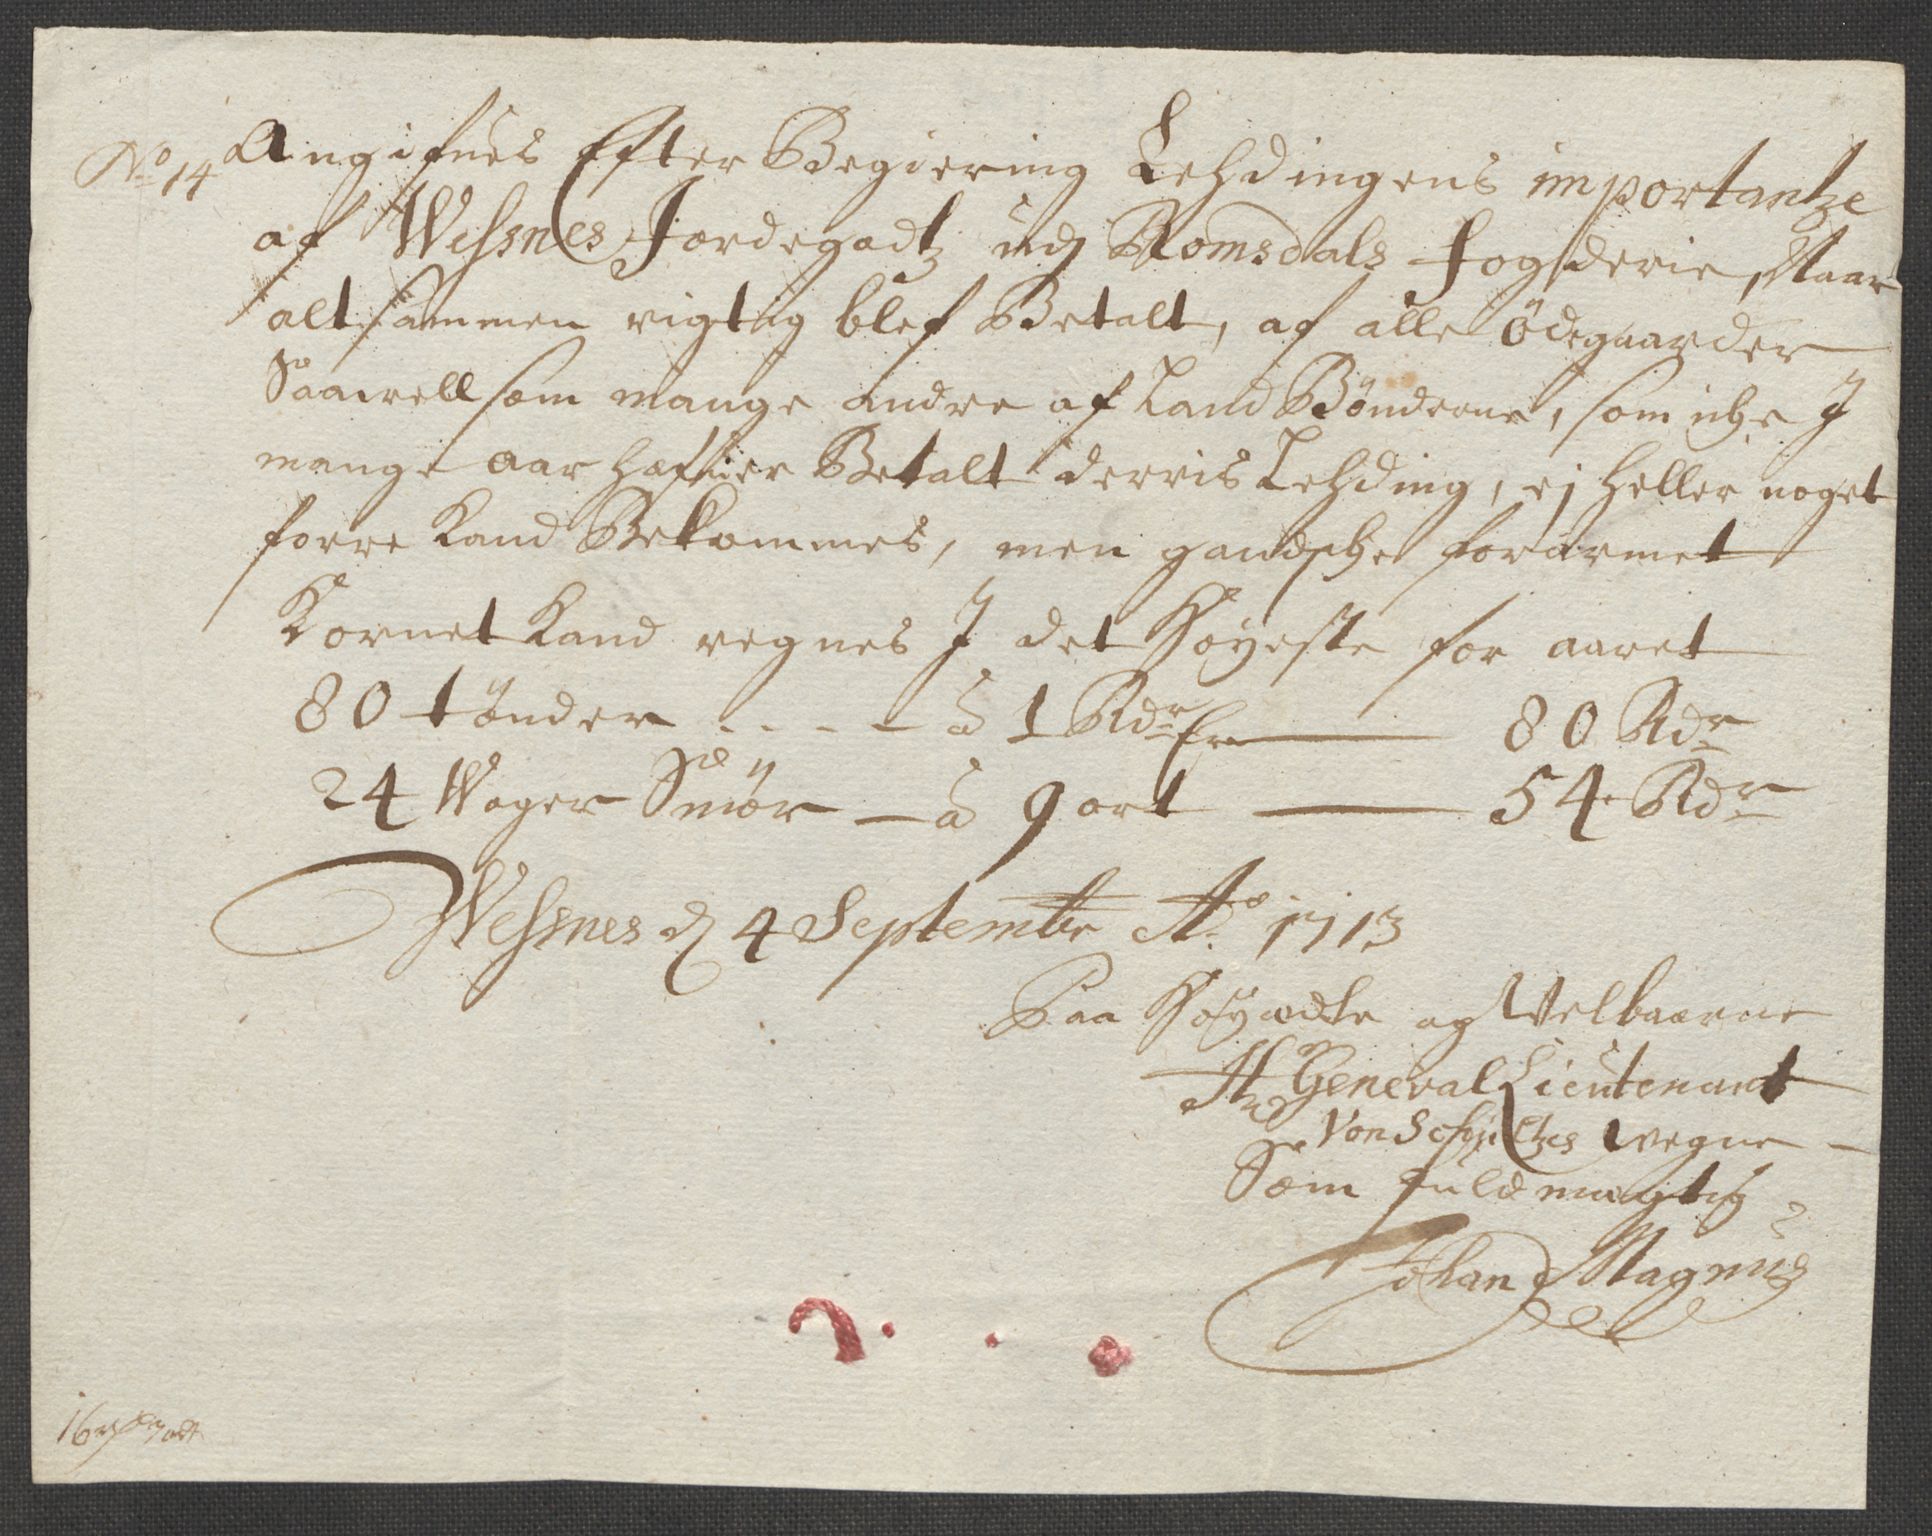 No 14 Angifues Efter Begiering Lehdingens importantze
af Wessnes Jordegodtz udj Romsdals fogderie, Naar
alt sammen rigtig blef Betalt, af alle ödegaarder
Saavell som mange andre af Land Bönderne, som iche J
mange aar hafuer Betalt derris Lehding, ej heller noget
forre Kand Bekommes, men gandsche forarmet
Kornet Kand regnes J det höyeste for aaret
80 tönder - - - - à 1 Rdr Er — 80 Rdr
24 Woger Smör — à 9 ort — 54 Rdr
Wessnes d 4 Septembr Ao 1713
Paa Höyædle og Velbaarne
Hr General Lieutenant
Von Schultzes vegne
Som fuldmægtig
Johan Magnus